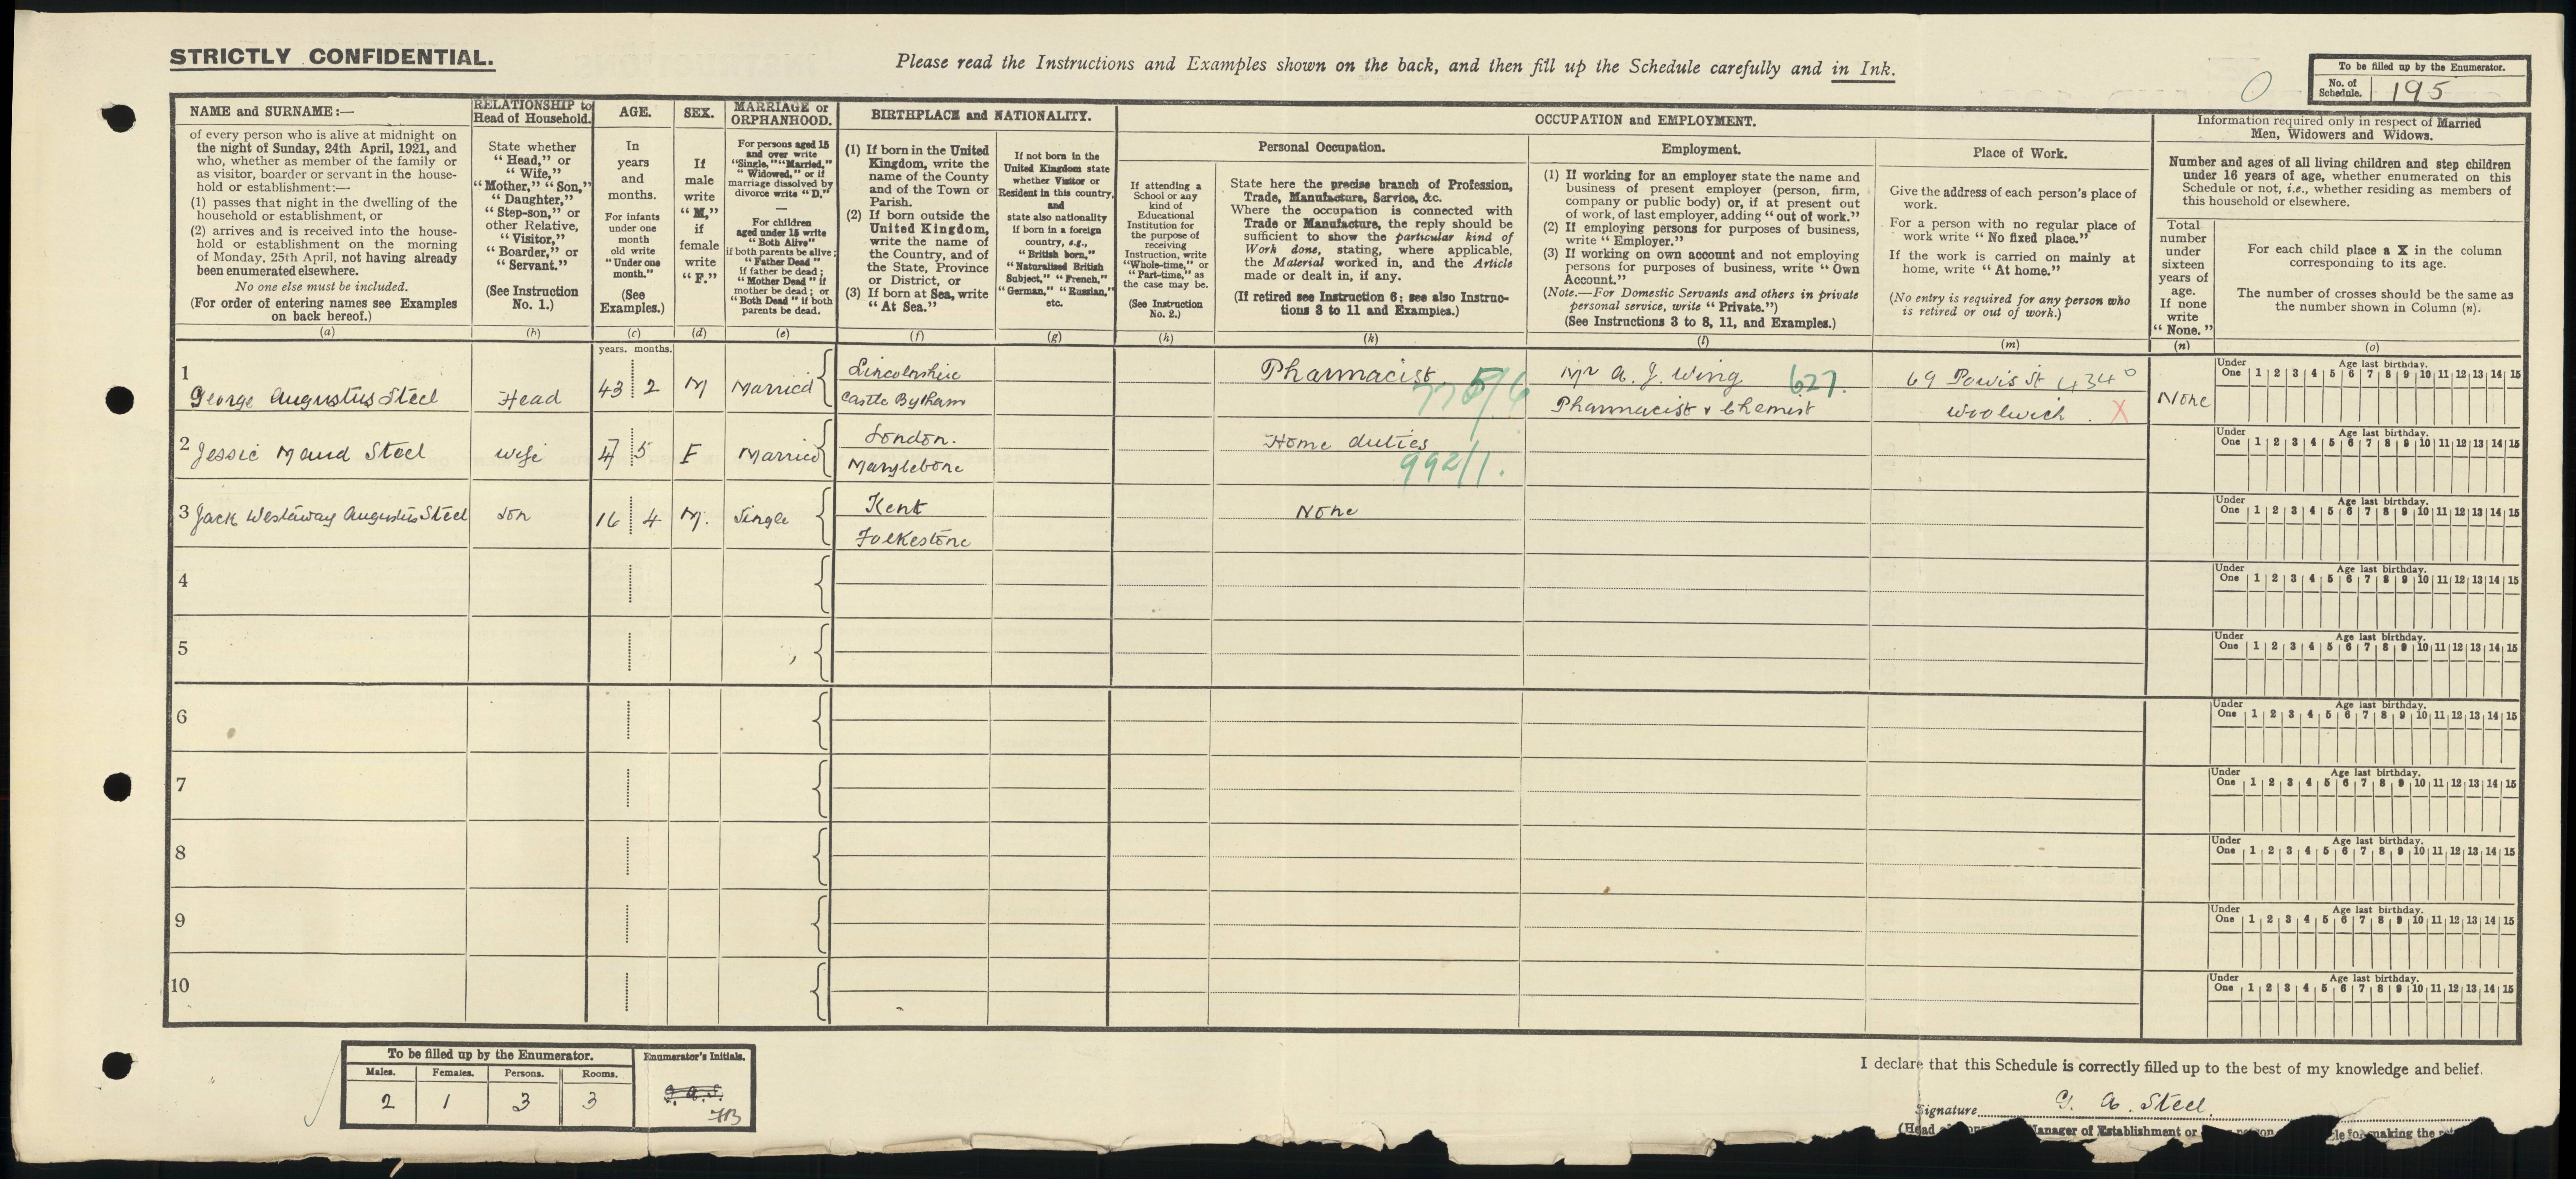 STRICTLY CONFIDENTIAL.
Please read the Instructions and Examples shown on the back, and then fill up the Schedule carefully and in Ink.
To be filled up by the Enumerator.
No. of Schedule. 195
0
NAME and SURNAME:—
of every person who is alive at midnight on
the night of Sunday, 24th April, 1921, and
who, whether as member of the family or
as visitor, boarder or servant in the house-
hold or establishment:—
(1) passes that night in the dwelling of the
household or establishment, or
(2) arrives and is received into the house-
hold or establishment on the morning
of Monday, 25th April, not having already
been enumerated elsewhere.
No one else must be included.
(For order of entering names see Examples
on back hereof.)
(a)
RELATIONSHIP to
Head of Household.
State whether
"Head," or
"Wife,"
"Mother," "Son,"
"Daughter,"
"Step-son," or
other Relative,
"Visitor,"
"Boarder," or
"Servant."
(See Instruction
No. 1.)
(b)
AGE.
In
years
and
months.
For infants
under one
month
old write
"Under one
month."
(See
Examples.)
(c)
SEX.
If
male
write
"M,"
if
female
write
"F."
(d)
MARRIAGE or
ORPHANHOOD.
For persons aged 15
and over write
"Single," "Married,"
"Widowed," or if
marriage dissolved by
divorce write "D."
—
For children
aged under 15 write
"Both Alive"
if both parents be alive;
"Father Dead"
if father be dead;
"Mother Dead" if
mother be dead; or
"Both Dead" if both
parents be dead.
(e)
BIRTHPLACE and NATIONALITY.
(1) If born in the United
Kingdom, write the
name of the County
and of the Town or
Parish.
(2) If born outside the
United Kingdom,
write the name of
the Country, and of
the State, Province
or District, or
(3) If born at Sea, write
"At Sea."
(f)
If not born in the
United Kingdom state
whether Visitor or
Resident in this country,
and
state also nationality
if born in a foreign
country, e.g.,
"British born,"
"Naturalised British
Subject," "French,"
"German," "Russian,"
etc.
(g)
OCCUPATION and EMPLOYMENT.
If attending a
School or any
kind of
Educational
Institution for
the purpose of
receiving
Instruction, write
"Whole-time," or
"Part-time," as
the case may be.
(See Instruction
No. 2.)
(h)
Personal Occupation.
State here the precise branch of Profession,
Trade, Manufacture, Service, &c.
Where the occupation is connected with
Trade or Manufacture, the reply should be
sufficient to show the particular kind of
Work done, stating, where applicable,
the Material worked in, and the Article
made or dealt in, if any.
(If retired see Instruction 6; see also Instruc-
tions 3 to 11 and Examples.)
(k)
Employment.
(1) If working for an employer state the name and
business of present employer (person, firm,
company or public body) or, if at present out
of work, of last employer, adding "out of work."
(2) If employing persons for purposes of business,
write "Employer."
(3) If working on own account and not employing
persons for purposes of business, write "Own
Account."
(Note.—For Domestic Servants and others in private
personal service, write "Private.")
(See Instructions 3 to 8, 11, and Examples.)
(l)
Place of Work.
Give the address of each person's place of
work.
For a person with no regular place of
work write "No fixed place."
If the work is carried on mainly at
home, write "At home."
(No entry is required for any person who
is retired or out of work.)
(m)
Information required only in respect of Married
Men, Widowers and Widows.
Number and ages of all living children and step children
under 16 years of age, whether enumerated on this
Schedule or not, i.e., whether residing as members of
this household or elsewhere.
Total
number
under
sixteen
years of
age.
If none
write
"None."
(n)
For each child place a X in the column
corresponding to its age.
The number of crosses should be the same as
the number shown in Column (n).
(o)
years. months.
1 George Augustus Steel Head 43 2 M Married Lincolnshire Castle Bytham Pharmacist 775/6 Mr A. J. Wing 627. Pharmacist & Chemist 69 Powis St 434 0 Woolwich X None
Under One Age last birthday. 1 2 3 4 5 6 7 8 9 10 11 12 13 14 15
2 Jessie Maud Steel Wife 47 5 F Married London. Marylebone Home duties 992/1.
Under One Age last birthday. 1 2 3 4 5 6 7 8 9 10 11 12 13 14 15
3 Jack Westaway Augustus Steel Son 16 4 M. Single Kent Folkestone None
Under One Age last birthday. 1 2 3 4 5 6 7 8 9 10 11 12 13 14 15
4
Under One Age last birthday. 1 2 3 4 5 6 7 8 9 10 11 12 13 14 15
5
Under One Age last birthday. 1 2 3 4 5 6 7 8 9 10 11 12 13 14 15
6
Under One Age last birthday. 1 2 3 4 5 6 7 8 9 10 11 12 13 14 15
7
Under One Age last birthday. 1 2 3 4 5 6 7 8 9 10 11 12 13 14 15
8
Under One Age last birthday. 1 2 3 4 5 6 7 8 9 10 11 12 13 14 15
9
Under One Age last birthday. 1 2 3 4 5 6 7 8 9 10 11 12 13 14 15
10
Under One Age last birthday. 1 2 3 4 5 6 7 8 9 10 11 12 13 14 15
To be filled up by the Enumerator.
Males. Females. Persons. Rooms.
2 1 3 3
Enumerator's Initials.
G. A. S.
I declare that this Schedule is correctly filled up to the best of my knowledge and belief.
Signature G. A. Steel.
(Head Manager of Establishment or making the